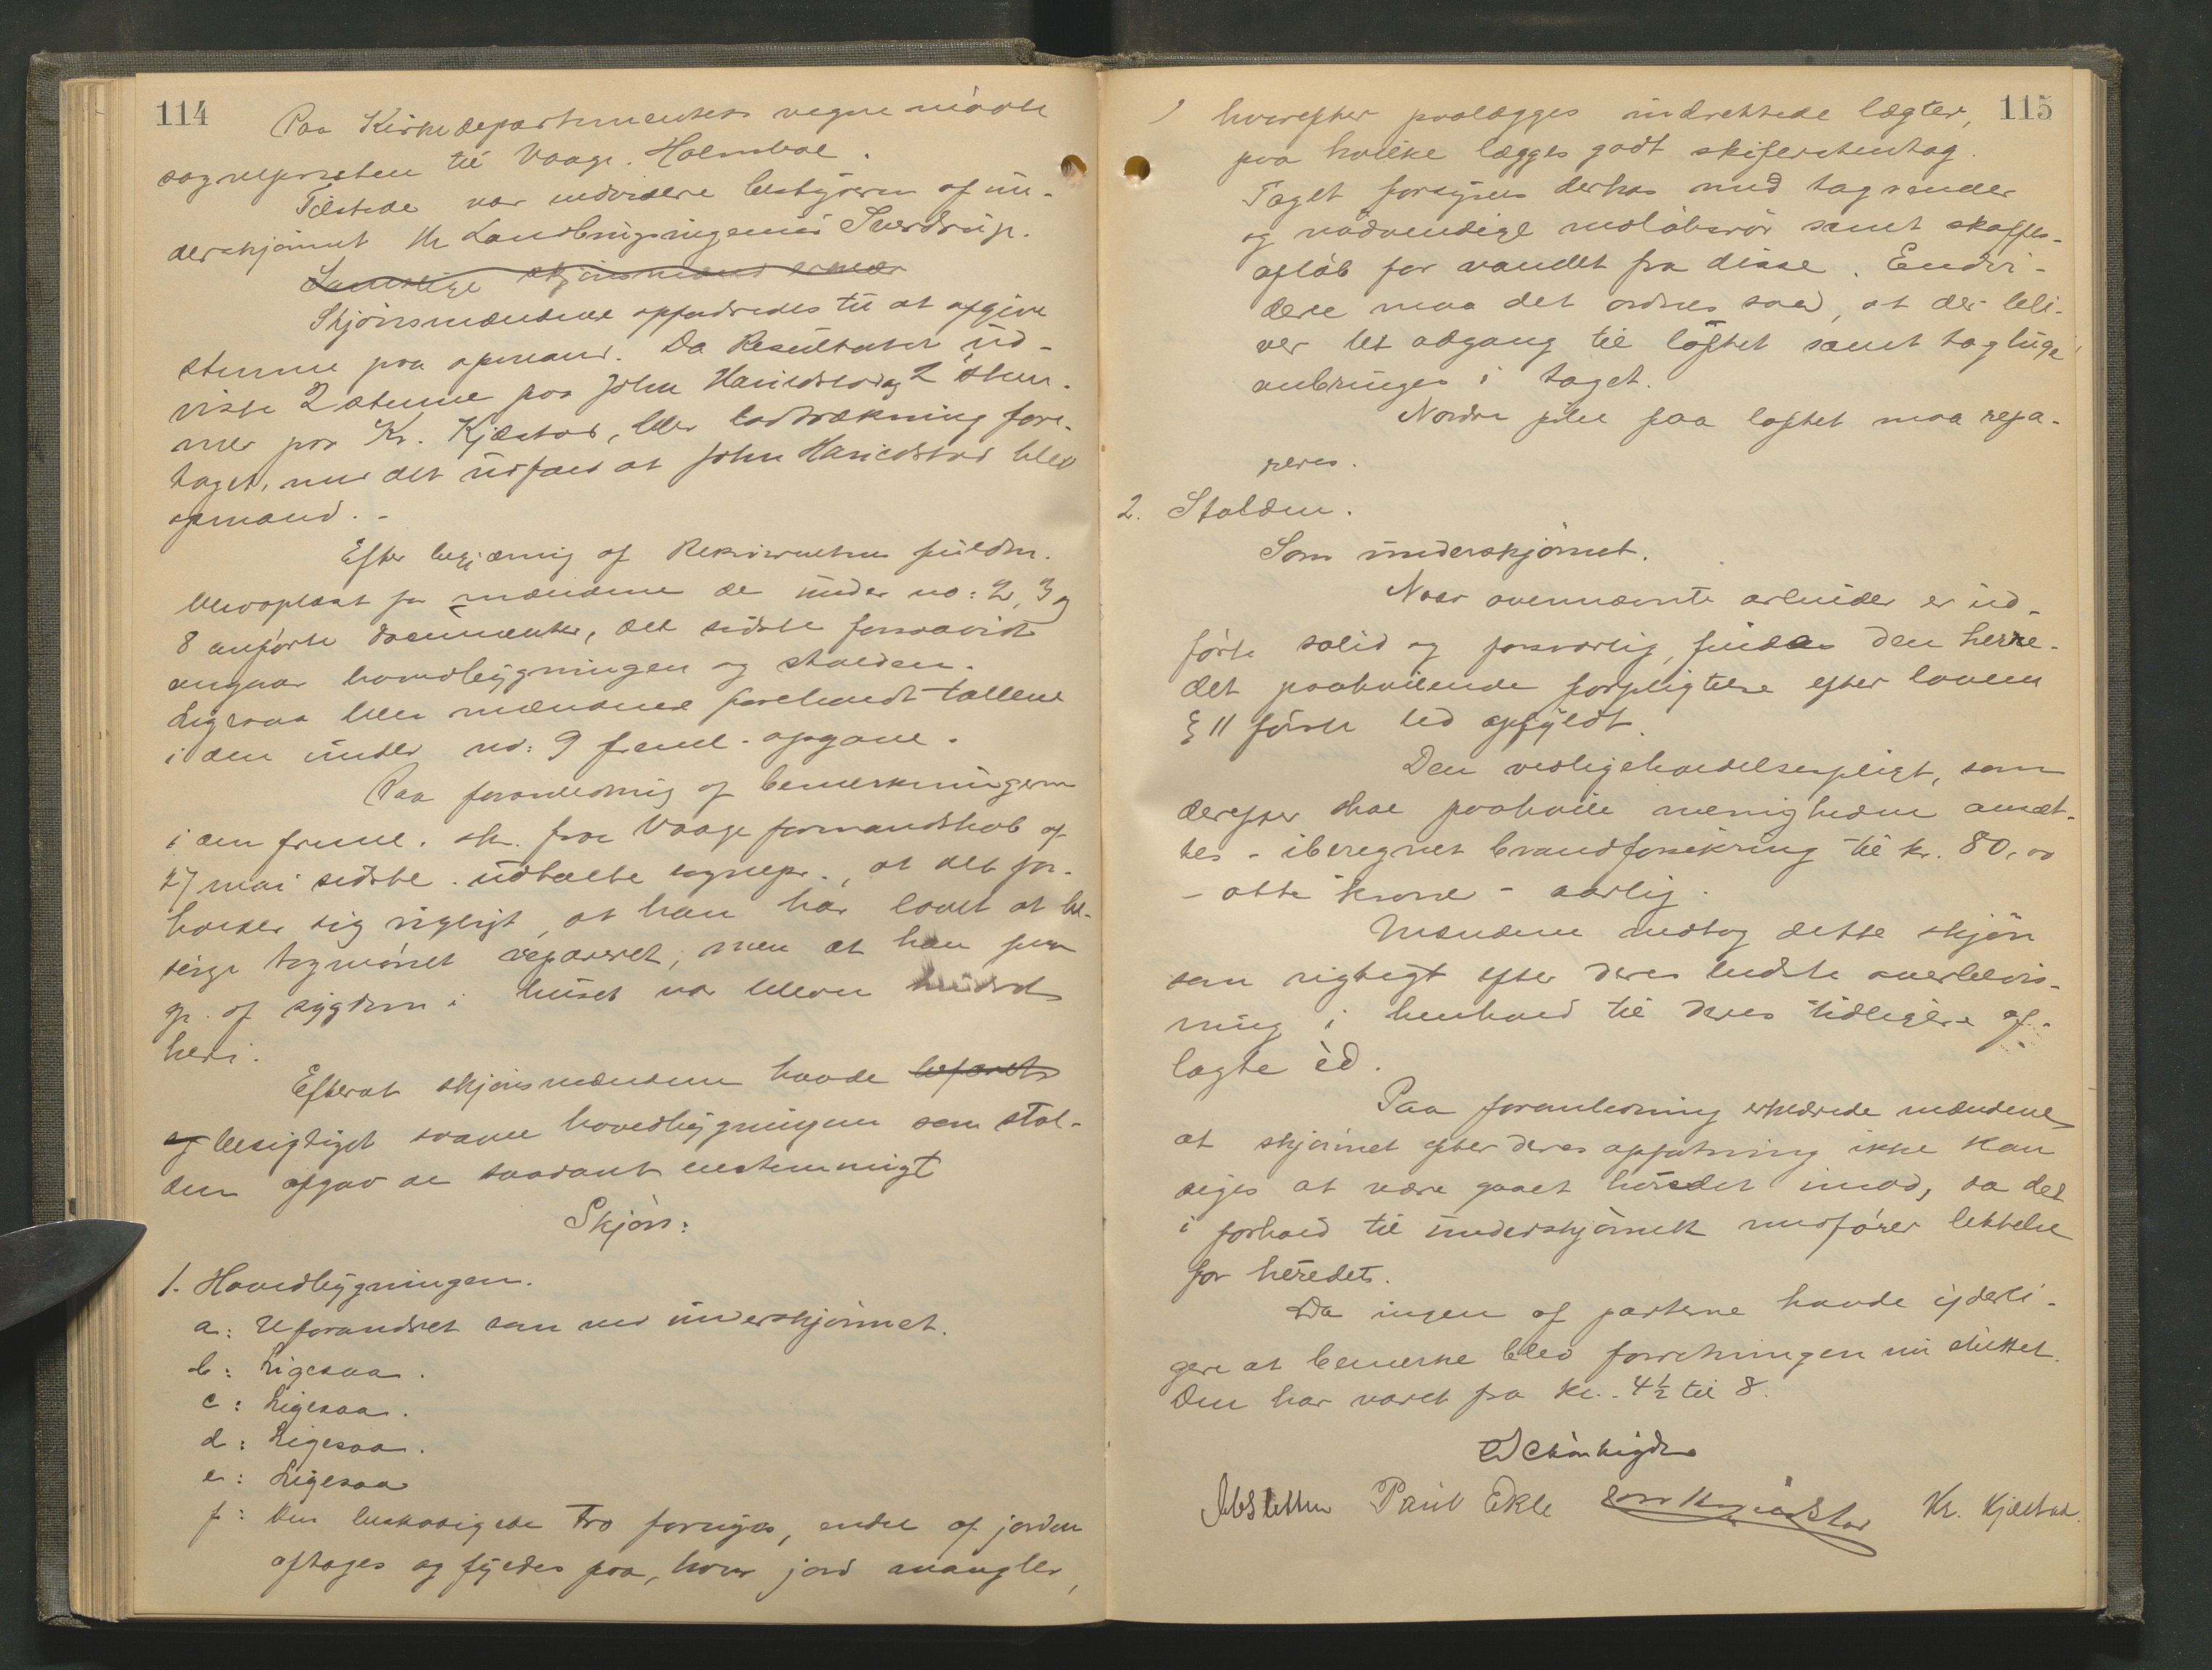 114
Paa Kirkedepartementets vegne mødte
sognepræsten til Vaage. Holmboe.
Tilstede var endvidere bestyreren af un-
derskjønnet Hr Landbrugsingeniør Sverdrup.
Samtlige skjønsmænd
Skjønsmændene opfordredes til at afgive
stemme paa opmand. Da Resultatet ud-
viste 2 stemme paa John Harildstad og 2 stem-
mer paa Kr. Kjæstad, blev lodtrækning fore-
taget, med det udfald at John Harildstad blev
opmand. -
Efter begjæring af Rekvirentens fuldm.
blev oplæst for mændene de under no: 2, 3 og
8 anførte documenter, det sidste forsaavidt
angaar hovedbygningen og stalden.
Ligesaa blev mændene foreholdt tallene
i den under no: 9 freml. opgave.
Paa foranledning af bemerkningerne
i den freml. skr. fra Vaage formandskab af
27 mai sidstl. udtalte sognepr., at det for-
holder sig rigtigt, at han har lovet at be-
sørge tagmønet repareret, men at han paa
gr. af sygdom i huset var bleven hindret
heri.
Efterat skjønsmændene havde befaret
og besigtiget saavel hovedbygningen som stal-
den afgav de saadant enstemmigt
Skjøn:
1. Hovedbygningen.
a: Uforandret som ved underskjønnet.
b: Ligesaa.
c: Ligesaa.
d: Ligesaa.
e: Ligesaa
f: Den beskadigede tro fornyes, endel af jorden
aftages og fyldes paa, hvor jord mangler,
115
hvorefter paalægges indrettede lægter,
paa hvilke lægges godt skiferstentag.
Taget forsynes derhos med tagrender
og nødvendige nedløbsrør samt skaffes
afløb for vandet fra disse. Endvi-
dere maa det ordnes saa, at der bli-
ver let adgang til løftet samt tagluge
anbringes i taget.
Nordre pibe paa loftet maa repa-
reres.
2. Stalden.
Som underskjønnet.
Naar ovennævnte arbeider er ud-
førte solid og forsvarlig, findes den herre-
det paahvilende forpligtelse efter lovens
§ 11 første led opfyldt.
Den vedligeholdelsespligt, som
derefter skal paahvile menigheden ansæt-
tes - iberegnet brandforsikring til kr. 80,00
- otti kroner - aarlig.
Mændene vedtog dette skjøn
som rigtigt efter deres bedste overbevis-
ning i henhold til deres tidligere af-
lagte ed.
Paa foranledning erklærede mændene
at skjønnet efter deres opfatning ikke kan
siges at være gaaet herredet imod, da det
i forhold til underskjønnet medfører lettelse
for herredet.
Da ingen af parterne havde yderli-
gere at bemerke blev forretningen nu sluttet.
Den har varet fra kl. 4½ til 8.
Paul Ekle Kr. Kjæstad.